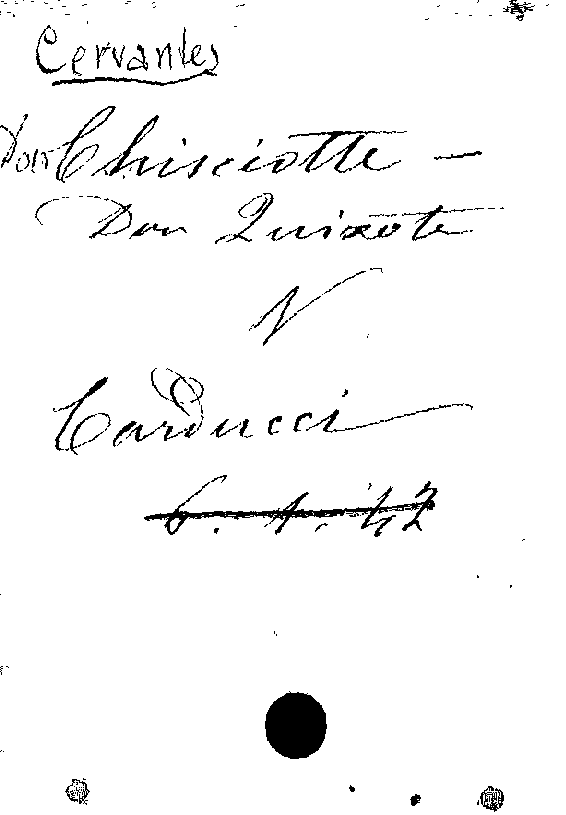 Cervantes
Don Chisciotte —
Don Quixote
V
Carducci
6. 4. 42